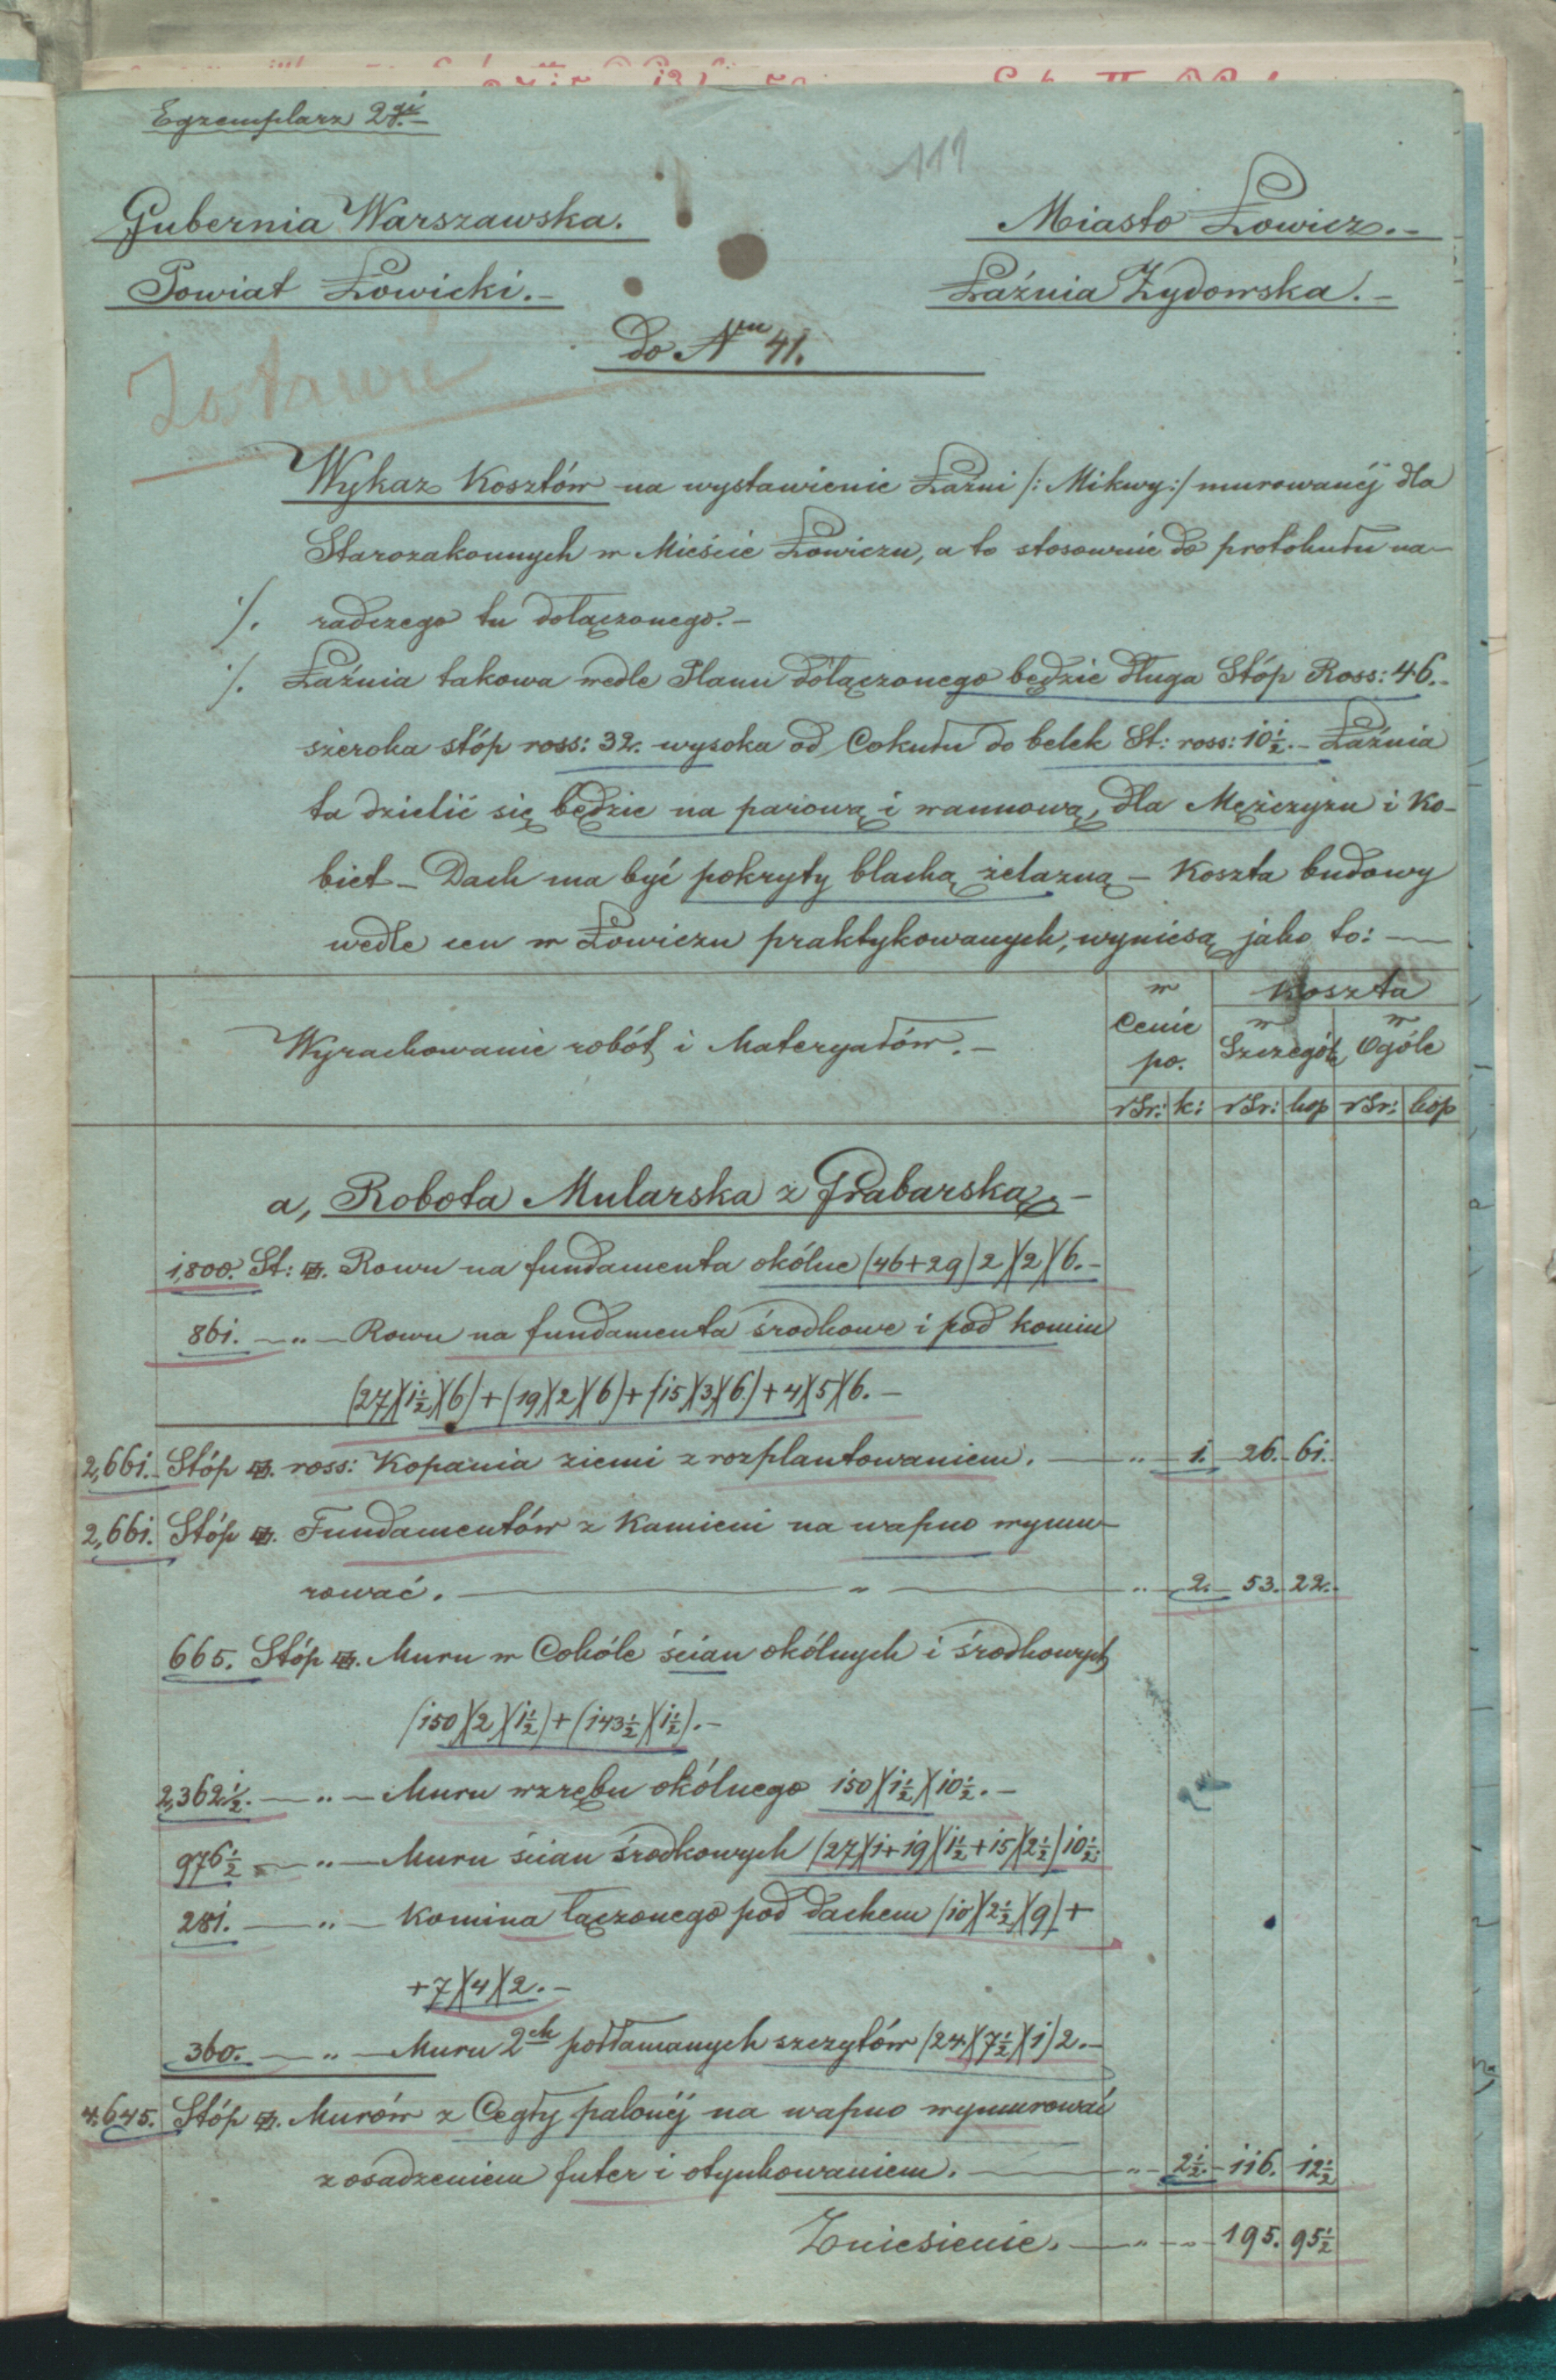 Egzemplarz 2gi.
111
Gubernia Warszawska.
Miasto Łowicz.
Powiat Łowicki.
Łaźnia Żydowska.
do Nru 41.
Zostawić
Wykaz Kosztów na wystawienie Łaźni /: Mikwy :/ murowanéj dla
Starozakonnych w Mieście Łowiczu, a to stosownie do protokułu na-
/. radczego tu dołączonego.
/. Łaźnia takowa wedle Planu dołączonego będzie długa Stóp Ross: 46.
szeroka stóp ross: 32. wysoka od Cokułu do belek St: ross: 10½. Łaźnia
ta dzielić się będzie na parową i wannową, dla Mężczyzn i Ko-
biet - Dach ma być pokryty blachą żelazną - Koszta budowy
wedle cen w Łowiczu praktykowanych, wyniosą jako to:
Wyrachowanie robót i Materyałów.
w Cenie po.
Koszta
w Szczególe
w Ogóle
rSr: k: rSr: kop rSr: kop
a, Robota Mularska z Grabarską.
1,800. St: Rowu na fundamenta okólne (46+29)2)(2)(6.
861. „ Rowu na fundamenta środkowe i pod komin
(27)(1½)(6)+(19)(2)(6)+(15)(3)(6)+4)(5)(6.
2,661. Stóp ross: Kopania ziemi z rozplantowaniem. „ 1. 26. 61.
2,661. Stóp Fundamentów z Kamieni na wapno wymu-
rować. „ „ 2. 53. 22.
665. Stóp Muru w Cokóle ścian okólnych i środkowych
(150)(2)(1½)+(143½)(1½).
2,362½. „ Muru wzrębu okólnego 150)(1½)(10½.
976½ „ Muru ścian środkowych (27)(1+19)(1½+15)(2½)10½.
281. „ Komina łączonego pod dachem (10)(2½)(9)+
+7)(4)(2.
360. „ Muru 2ch połłamanych szczytów (24)(7½)(1)2.
4,645. Stóp Murów z Cegły palonéj na wapno wymurować
z osadzeniem futer i otynkowaniem. „ 2½. 116. 12½
Zniesienie. „ „ 195. 95½